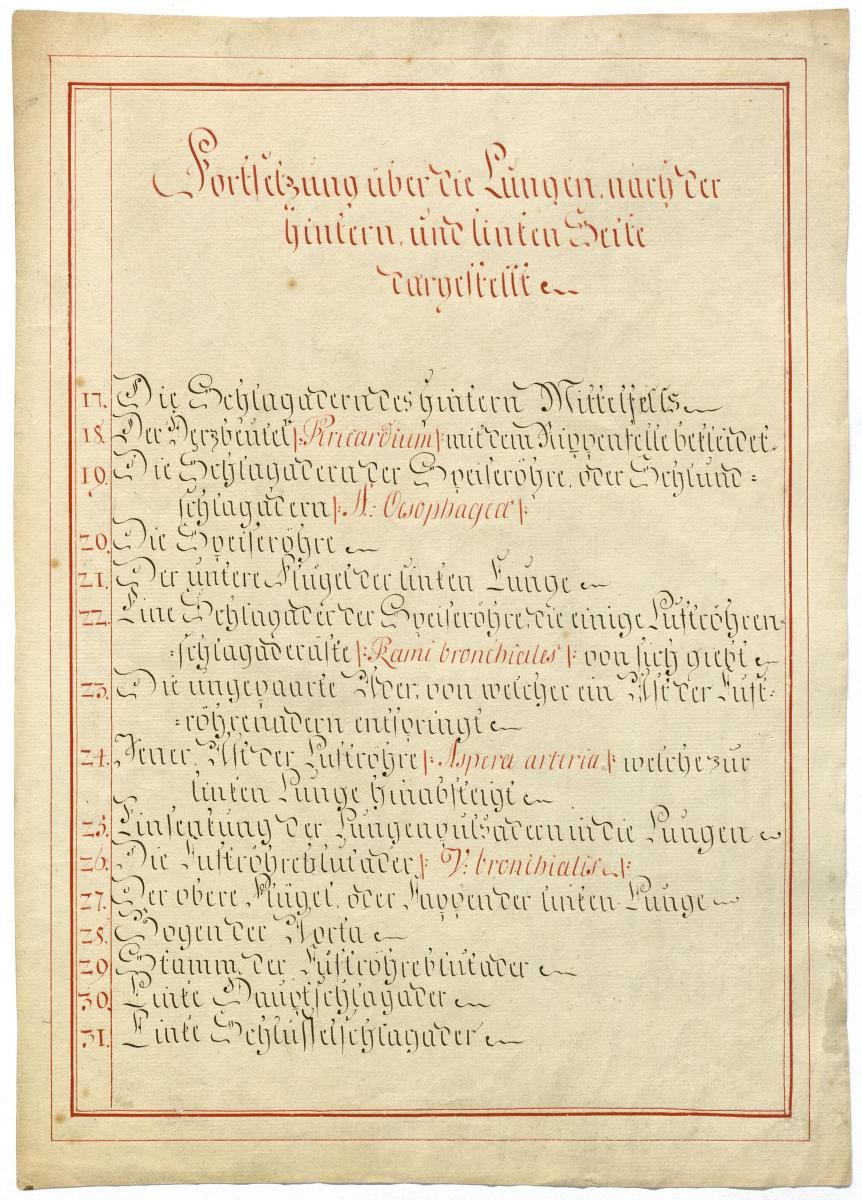 Fortsetzung über die Lungen, nach der
hintern, und linken Seite
dargestellt
17. Die Schlagadern des hintern Mittelfells
18. Der Herzbeutel |: Piricardium :| mit dem Rippenfelle bekleidet.
19. Die Schlagadern der Speiseröhre, oder Schlund=
schlagadern |: A: Oesophageæ :|
20. Die Speiseröhre
21. Der untere Flügel der linken Lunge
22. Eine Schlagader der Speiseröhre, die einige Luftröhren=
=schlagaderäste |: Rami bronchiales :| von sich giebt
23. Die ungepaarte Ader, von welcher ein Ast der Luft=
=röhrenadern entspringt
24. Jener Ast der Luftröhre |: Aspera arteria :| welche zur
linken Lunge hinabsteigt
25. Einsenkung der Lungenpulsadern in die Lungen
26. Die Luftröhreblutader |: V: bronchialis :|
27. Der obere Flügel, oder Lappen der linken Lunge
28. Bogen der Aorta
29. Stamm der Luftröhreblutader
30. Linke Hauptschlagader
31. Linke Schlüsselschlagader